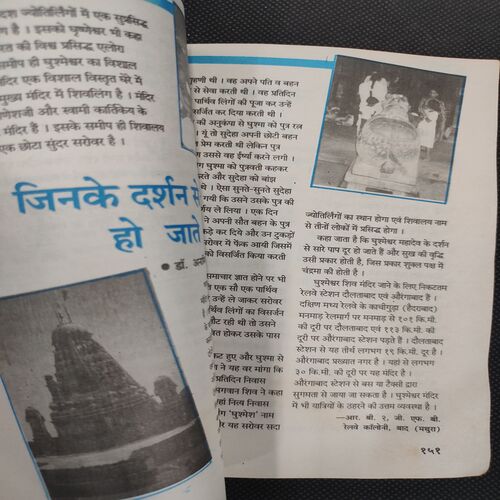 दश ज्योतिर्लिंगों में एक सुप्रसिद्ध
ग है । इसको घृष्णेश्वर भी कहा
रत की विश्व प्रसिद्ध एलोरा
समीप ही घुश्मेश्वर का विशाल
मंदिर एक विशाल विस्तृत घेरे में
मुख्य मंदिर में शिवलिंग है । मंदिर
गणेशजी और स्वामी कार्तिकेय के
मंदिर हैं । इसके समीप ही शिवालय
एक छोटा सुंदर सरोवर है ।
जिनके दर्शन से
हो जाते
● डॉ.
गृहणी थी । वह अपने पति व बहन
से सेवा करती थी । वह प्रतिदिन
पार्थिव लिंगों की पूजा कर उन्हें
सर्जित कर दिया करती थी ।
की अनुकंपा से घुश्मा को पुत्र रत्न
। यूं तो सुदेहा अपनी छोटी बहन
प्रेम करती थी लेकिन पुत्र
उससे वह ईर्ष्या करने लगी ।
घुश्मा को पुत्रवती कहकर
करते और सुदेहा को बांझ
थे । ऐसा सुनते-सुनते सुदेहा
गयी कि उसने उसके पुत्र की
र्णय ले लिया । एक दिन
ने अपनी सौत बहन के पुत्र
कड़े कर दिये और उन टुकड़ों
सरोवर में फेंक आयी जिसमें
को विसर्जित किया करती
समाचार ज्ञात होने पर भी
एक सौ एक पार्थिव
उन्हें ले जाकर सरोवर
र्थिव लिंगों का विसर्जन
लौट रही थी तो उसने
वित होकर उसके पास
कट हुए और घुश्मा से
ने यह वर मांगा कि
प्रतिदिन निवास
भगवान शिव ने कहा
हां नित्य निवास
'घुश्मेश' नाम
और यह सरोवर सदा
ज्योतिर्लिंगों का स्थान होगा एवं शिवालय नाम
से तीनों लोकों में प्रसिद्ध होगा ।
कहा जाता है कि घुश्मेश्वर महादेव के दर्शन
से सारे पाप दूर हो जाते हैं और सुख की वृद्धि
उसी प्रकार होती है, जिस प्रकार शुक्ल पक्ष में
चंद्रमा की होती है ।
घुश्मेश्वर शिव मंदिर जाने के लिए निकटतम
रेलवे स्टेशन दौलताबाद एवं औरंगाबाद हैं ।
दक्षिण मध्य रेलवे के काचीगुड़ा (हैदराबाद)
मनमाड़ रेलमार्ग पर मनमाड़ से १०१ कि.मी.
की दूरी पर दौलताबाद एवं ११३ कि.मी. की
दूरी पर औरंगाबाद स्टेशन पड़ते हैं । दौलताबाद
स्टेशन से यह तीर्थ लगभग १५ कि.मी. दूर है ।
औरंगाबाद प्रख्यात नगर है । यहां से लगभग
३० कि.मी. की दूरी पर यह मंदिर है ।
औरंगाबाद स्टेशन से बस या टैक्सी द्वारा
सुगमता से जाया जा सकता है । घुश्मेश्वर मंदिर
में भी यात्रियों के ठहरने की उत्तम व्यवस्था है ।
—आर. बी. २, जी. एफ. बी.
रेलवे कॉलोनी, बाद (मथुरा)
१५१